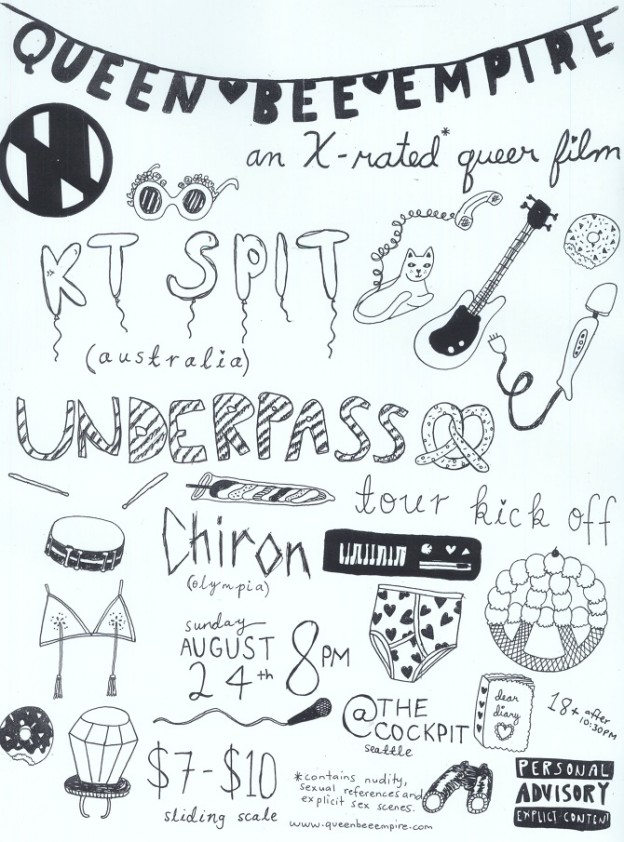 QUEEN BEE EMPIRE
an X-rated* queer film
KT SPIT
(australia)
UNDERPASS
tour kick off
Chiron
(olympia)
sunday
AUGUST
24th 8PM
@THE
COCKPIT
seattle
dear
diary
18+ after
10:30PM
$7-$10
sliding scale
*contains nudity,
sexual references and
explicit sex scenes.
www.queenbeeempire.com
PERSONAL
ADVISORY
EXPLICIT CONTENT